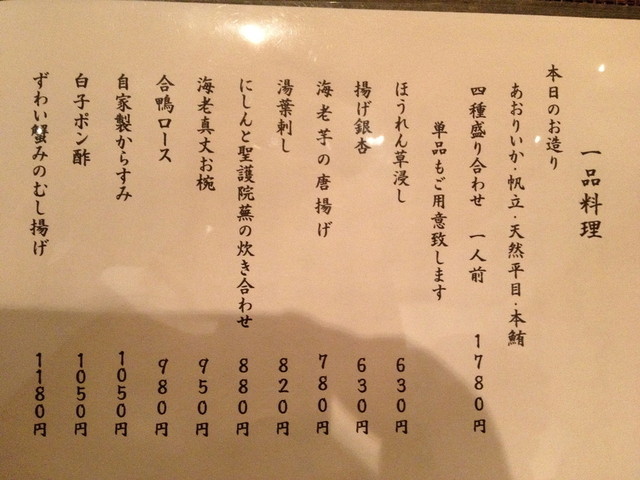 一品料理
本日のお造り
あおりいか・帆立・天然平目・本鮪
四種盛り合わせ 一人前 1780円
単品もご用意致します
ほうれん草浸し 630円
揚げ銀杏 630円
海老芋の唐揚げ 780円
湯葉刺し 820円
にしんと聖護院蕪の炊き合わせ 880円
海老真丈お椀 950円
合鴨ロース 980円
自家製からすみ 1050円
白子ポン酢 1050円
ずわい蟹みのむし揚げ 1180円